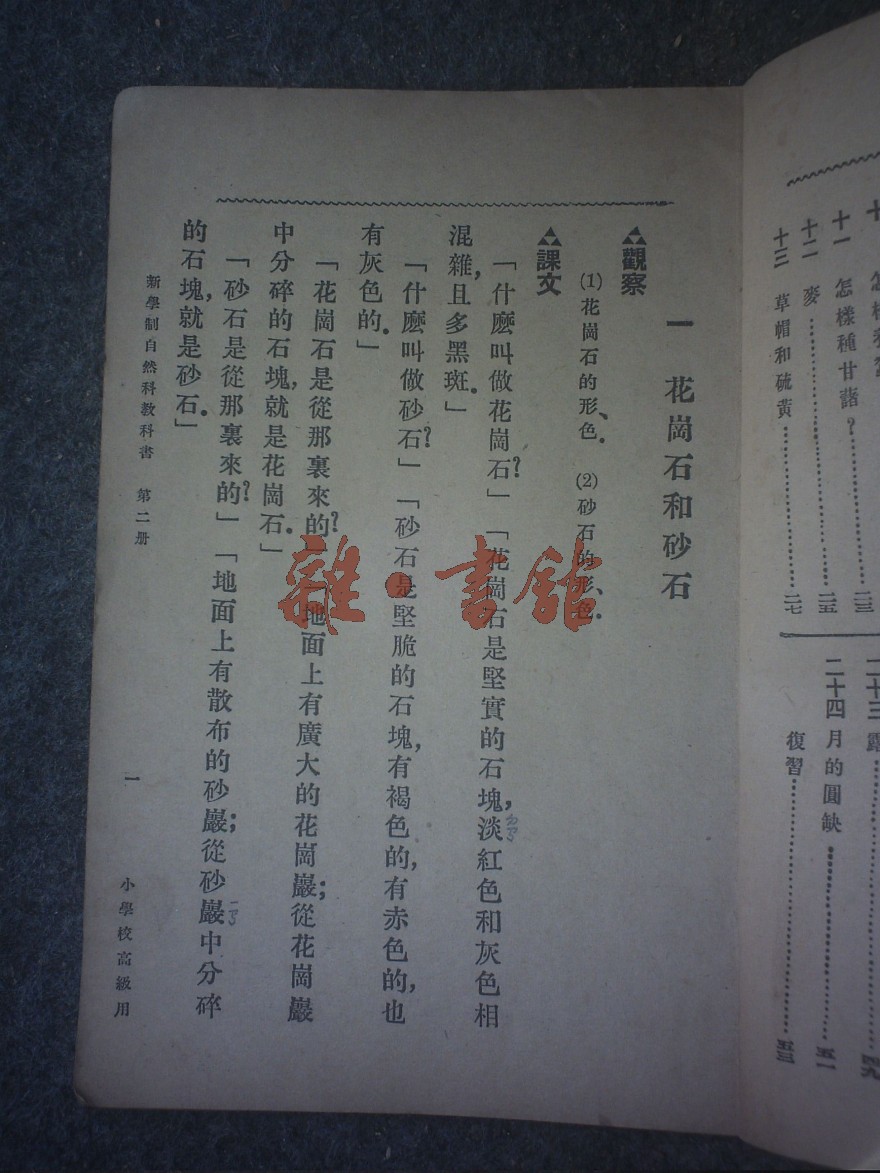 十一 怎樣種甘藷?……二三
十二 麥……二五
十三 草帽和硫黄……二七
二十三 露……四九
二十四 月的圓缺……五一
復習……五三
一 花崗石和砂石
觀察
(1)花崗石的形、色. (2)砂石的形、色.
課文
「什麼叫做花崗石?」「花崗石是堅實的石塊,淡紅色和灰色相
ㄉㄢ
混雜,且多黑斑.」
「什麼叫做砂石?」「砂石是堅脆的石塊,有褐色的,有赤色的,也
有灰色的.」
「花崗石是從那裏來的?」「地面上有廣大的花崗巖;從花崗巖
中分碎的石塊,就是花崗石.」
「砂石是從那裏來的?」「地面上有散布的砂巖;從砂巖中分碎
ㄧㄢ
的石塊,就是砂石.」
新學制自然科教科書 第二册 一 小學校高級用
雜·書館